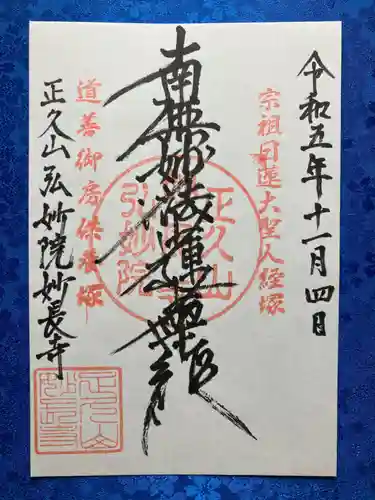 令和五年十一月四日
宗祖日蓮大聖人経塚
南無妙法蓮華経
道善御房供養塚
正久山弘妙院妙長寺
正久山
弘妙院